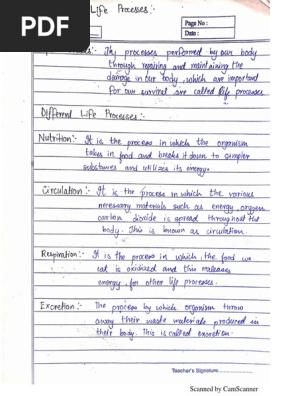 PDF
Life Processes :-
Page No :
Date :
The processes performed by our body
through repairing and maintaining the
damage in our body, which are important
for our survival are called life processes
Different Life Processes :-
Nutrition :- It is the process in which the organism
takes in food and breaks it down to simpler
substances and utilizes its energy.
Circulation :- It is the process in which the various
necessary materials such as energy, oxygen
carbon dioxide is spread throughout the
body. This is known as circulation.
Respiration :- It is the process in which, the food we
eat is oxidized and this releases
energy, for other life processes.
Excretion :- The process by which organism throw
away their waste materials produced in
their body. This is called excretion.
Teacher's Signature
Scanned by CamScanner